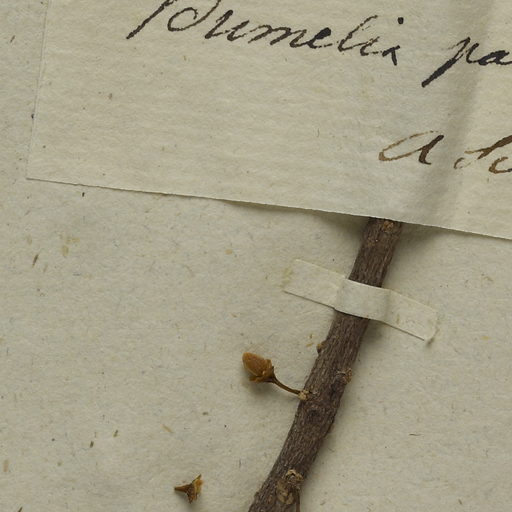 Bumelia pa
a